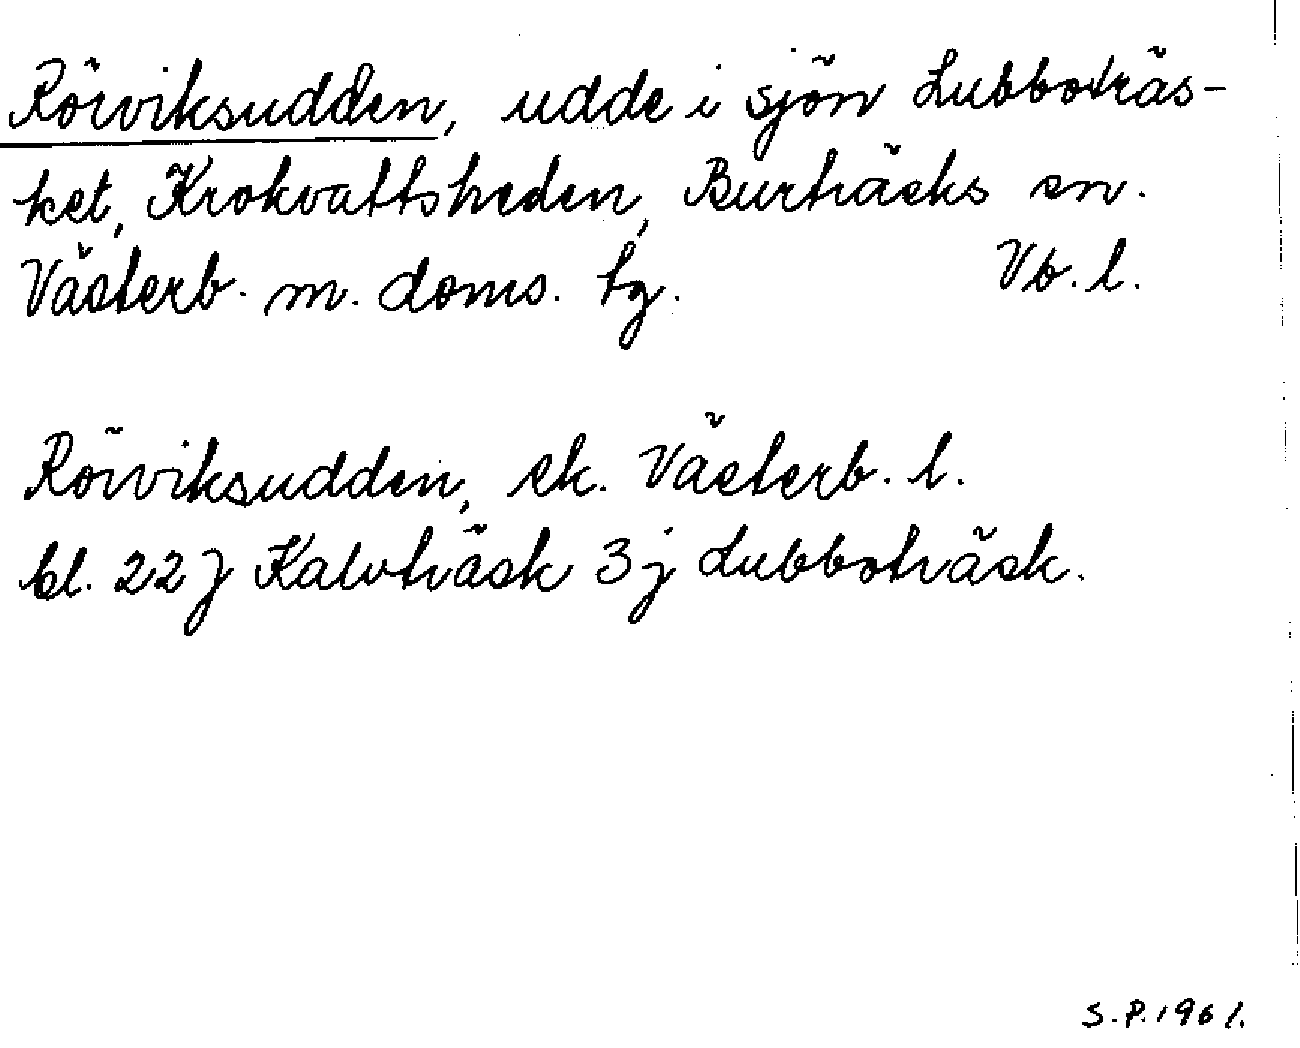 Rörviksudden, udde i sjön Lubboträs-
ket, Krokvattsheden, Burträsks sn.
Västerb. m. doms. tg. Vb. l.
Rörviksudden, ek. Västerb. l.
bl. 22 J Kalvträsk 3 j Lubboträsk.
S.P. 1961.